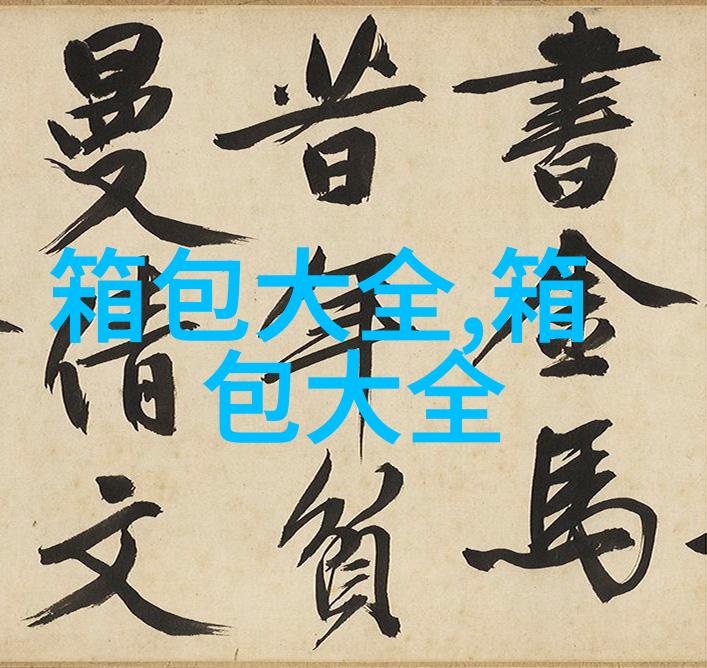 箱包大全,箱
包大全
書金馬
昔年
曼倩文